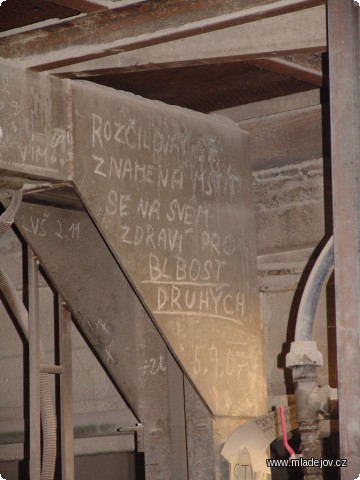 ROZČILOVAT SE
ZNAMENÁ MSTÍT
SE NA SVÉM
ZDRAVÍ PRO
BLBOST
DRUHÝCH
5.9.07
VŠ 2.11
www.mladejov.cz